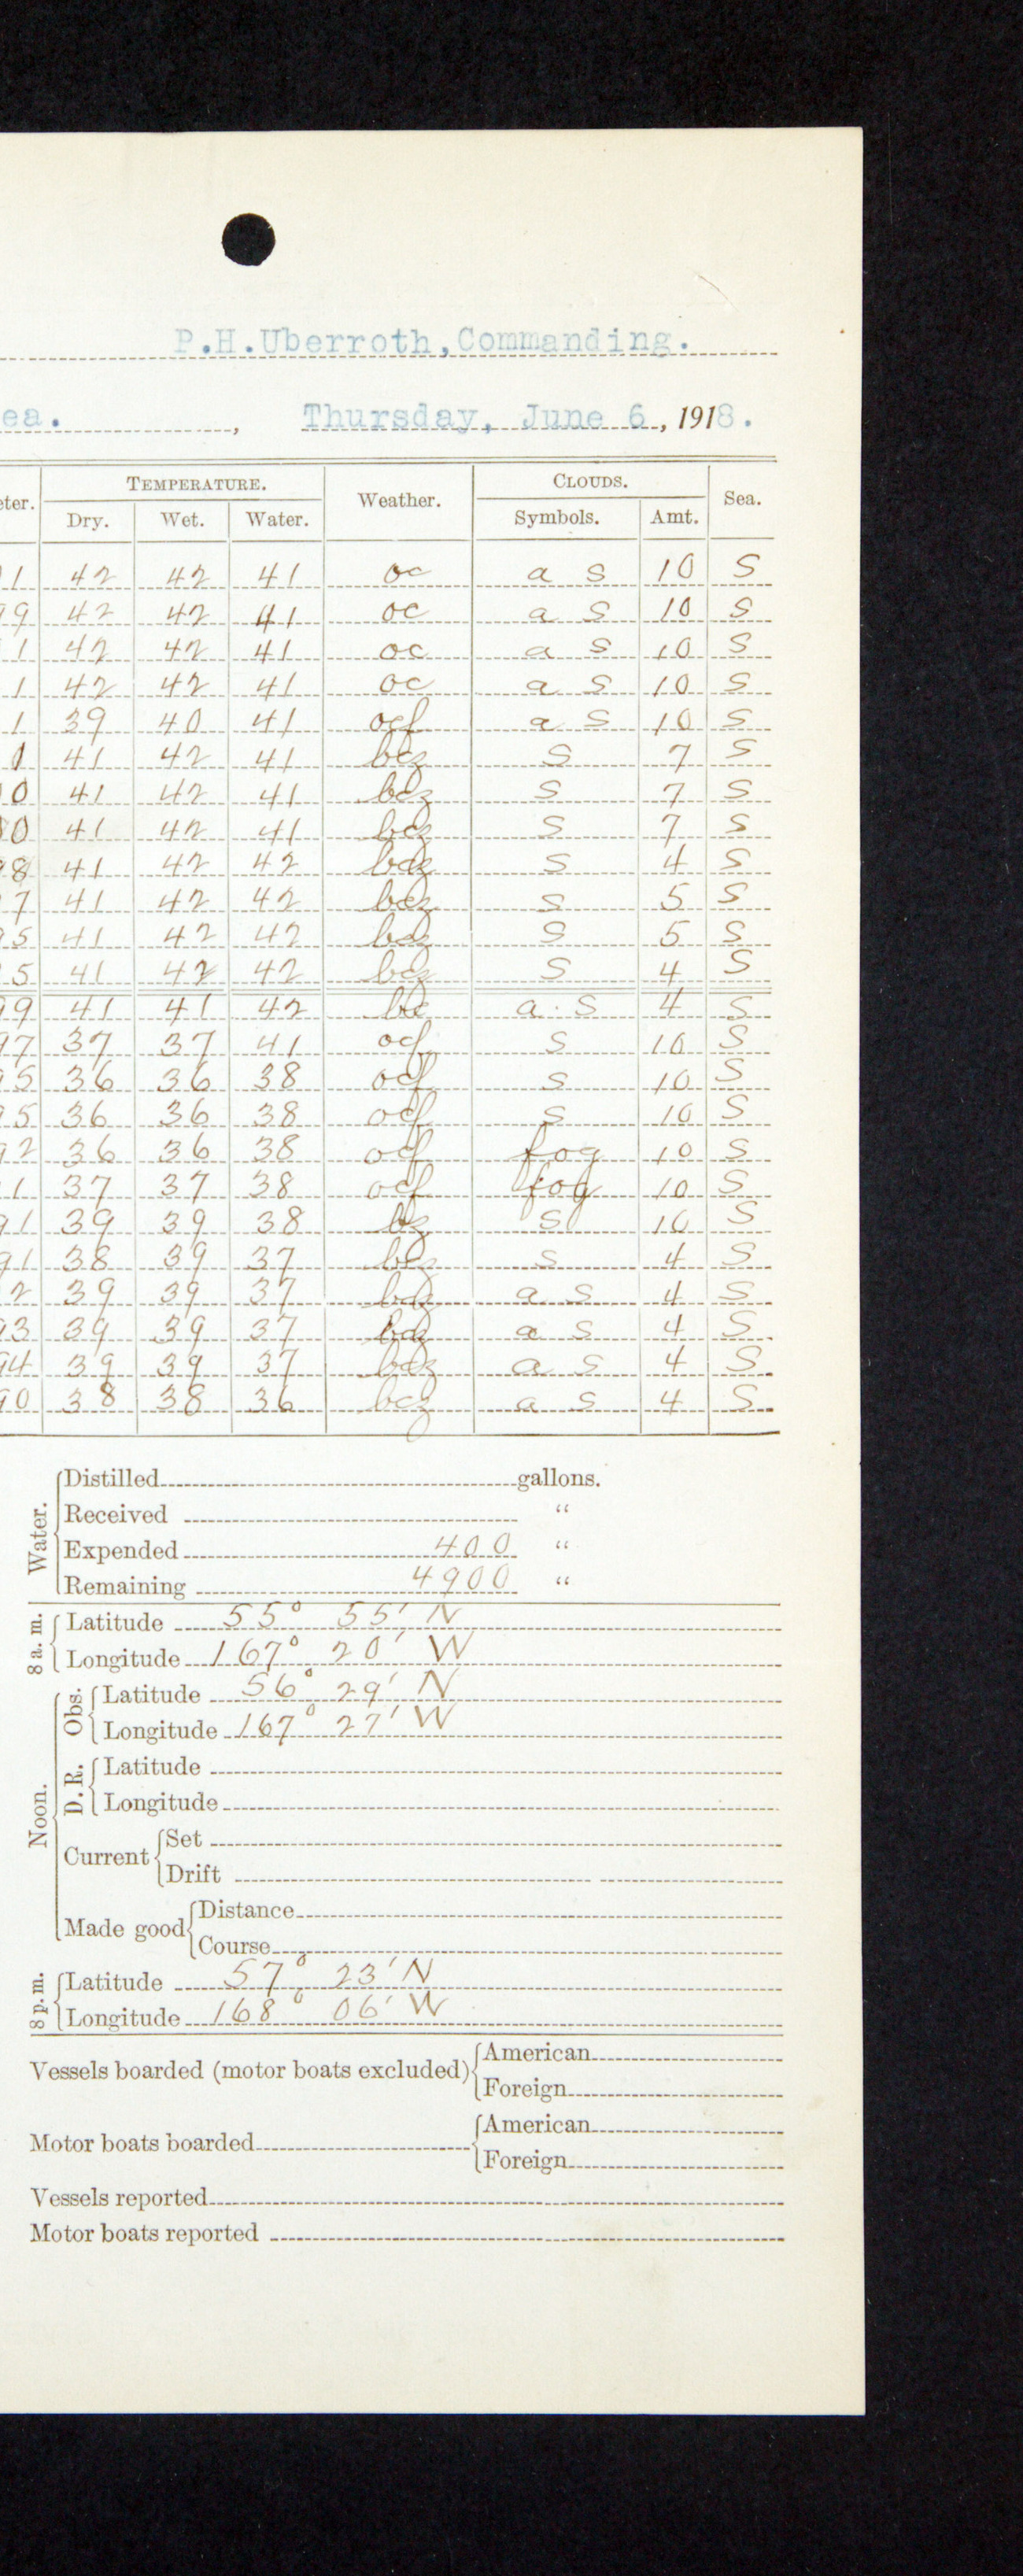 P.H.Uberroth,Commanding.
ea. , Thursday, June 6, 1918.
eter. TEMPERATURE. Weather. CLOUDS. Sea.
Dry. Wet. Water. Symbols. Amt.
1 42 42 41 oc a s 10 S
99 42 42 41 oc a s 10 S
1 42 42 41 oc a s 10 S
1 42 42 41 oc a s 10 S
1 39 40 41 ocf a s 10 S
1 41 42 41 bcz S 7 S
0 41 42 41 bcz S 7 S
00 41 42 41 bcz S 7 S
98 41 42 42 bcz S 4 S
7 41 42 42 bcz S 5 S
95 41 42 42 bcz S 5 S
5 41 42 42 bcz S 4 S
99 41 41 42 bc a s 4 S
97 37 37 41 ocf S 10 S
95 36 36 38 ocf S 10 S
95 36 36 38 ocf S 10 S
92 36 36 38 ocf fog 10 S
1 37 37 38 ocf fog 10 S
91 39 39 38 bz S 10 S
91 38 39 37 bcz S 4 S
2 39 39 37 bcz a s 4 S
93 39 39 37 bcz a s 4 S
94 39 39 37 bcz a s 4 S
90 38 38 36 bcz a s 4 S
Water.
Distilled gallons.
Received "
Expended 400 "
Remaining 4900 "
8 a. m.
Latitude 55° 55' N
Longitude 167° 20' W
Noon.
Obs.
Latitude 56° 29' N
Longitude 167° 27' W
D. R.
Latitude
Longitude
Current
Set
Drift
Made good
Distance
Course
8 p. m.
Latitude 57° 23' N
Longitude 168° 06' W
Vessels boarded (motor boats excluded)
American
Foreign
Motor boats boarded
American
Foreign
Vessels reported
Motor boats reported